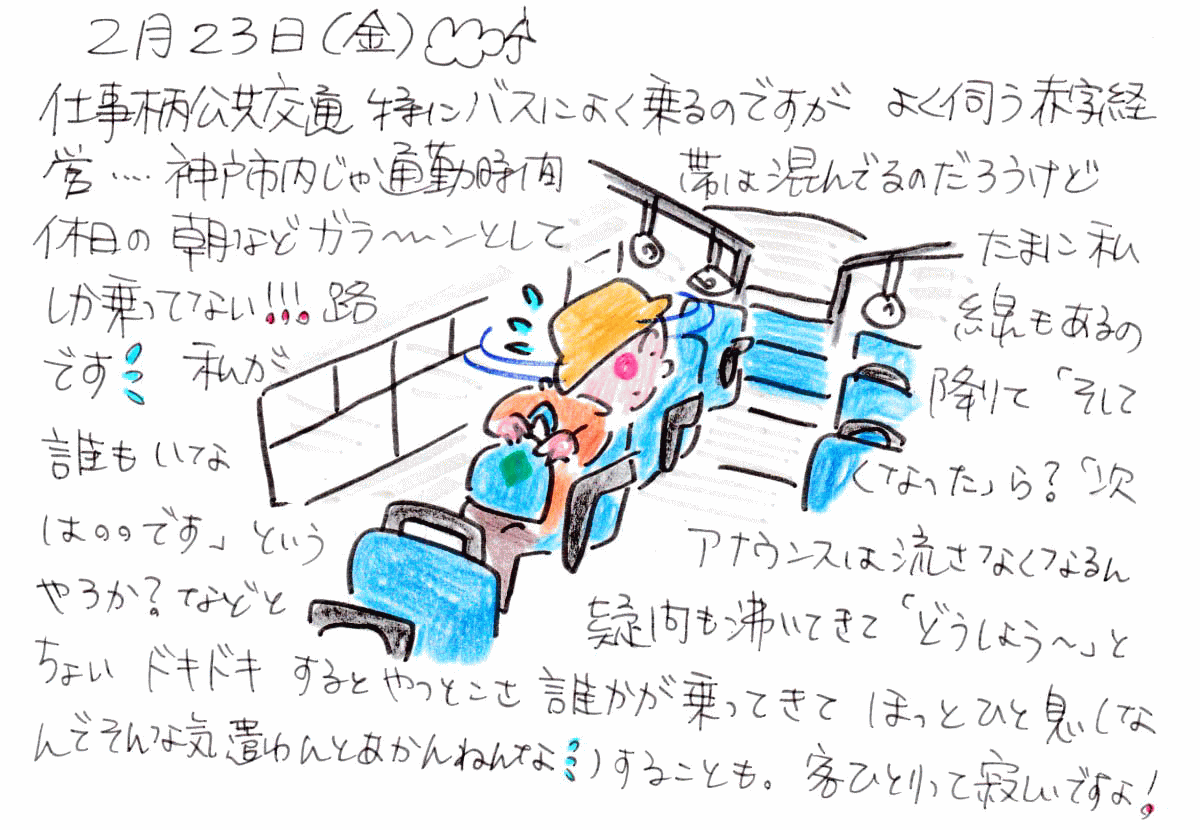 2月23日(金)
仕事柄公共交通 特にバスによく乗るのですが よく伺う赤字経
営‥‥神戸市内じゃ通勤時間 帯は混んでるのだろうけど
休日の朝などガラ〜〜ンとして たまに私
しか乗ってない!!!路 線もあるの
です 私が 降りて「そして
誰もいな くなった」ら?「次
は○○です」という アナウンスは流さなくなるん
やろか?などと 疑問も沸いてきて「どうしよう〜」と
ちょい ドキドキ するとやっとこさ 誰かが乗ってきて ほっとひと息(な
んでそんな気遣わんとあかんねんな)することも。客ひとりって寂しいですよ!